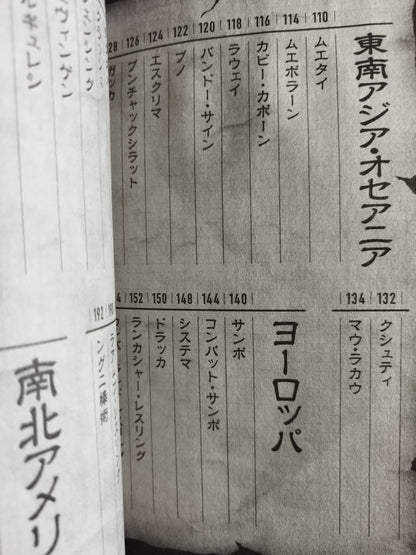 東南アジア・オセアニア
110 ムエタイ
114 ムエボラーン
116 カビー・カボーン
118 ラウェイ
120 バンドー・サイン
122 ブノ
124 エスクリマ
126 プンチャックシラット
132 クシュティ
134 マウ・ラカウ
ヨーロッパ
140 サンボ
144 コンバット・サンボ
148 システマ
150 ドラッカ
152 ランカシャー・レスリング
192
南北アメリ